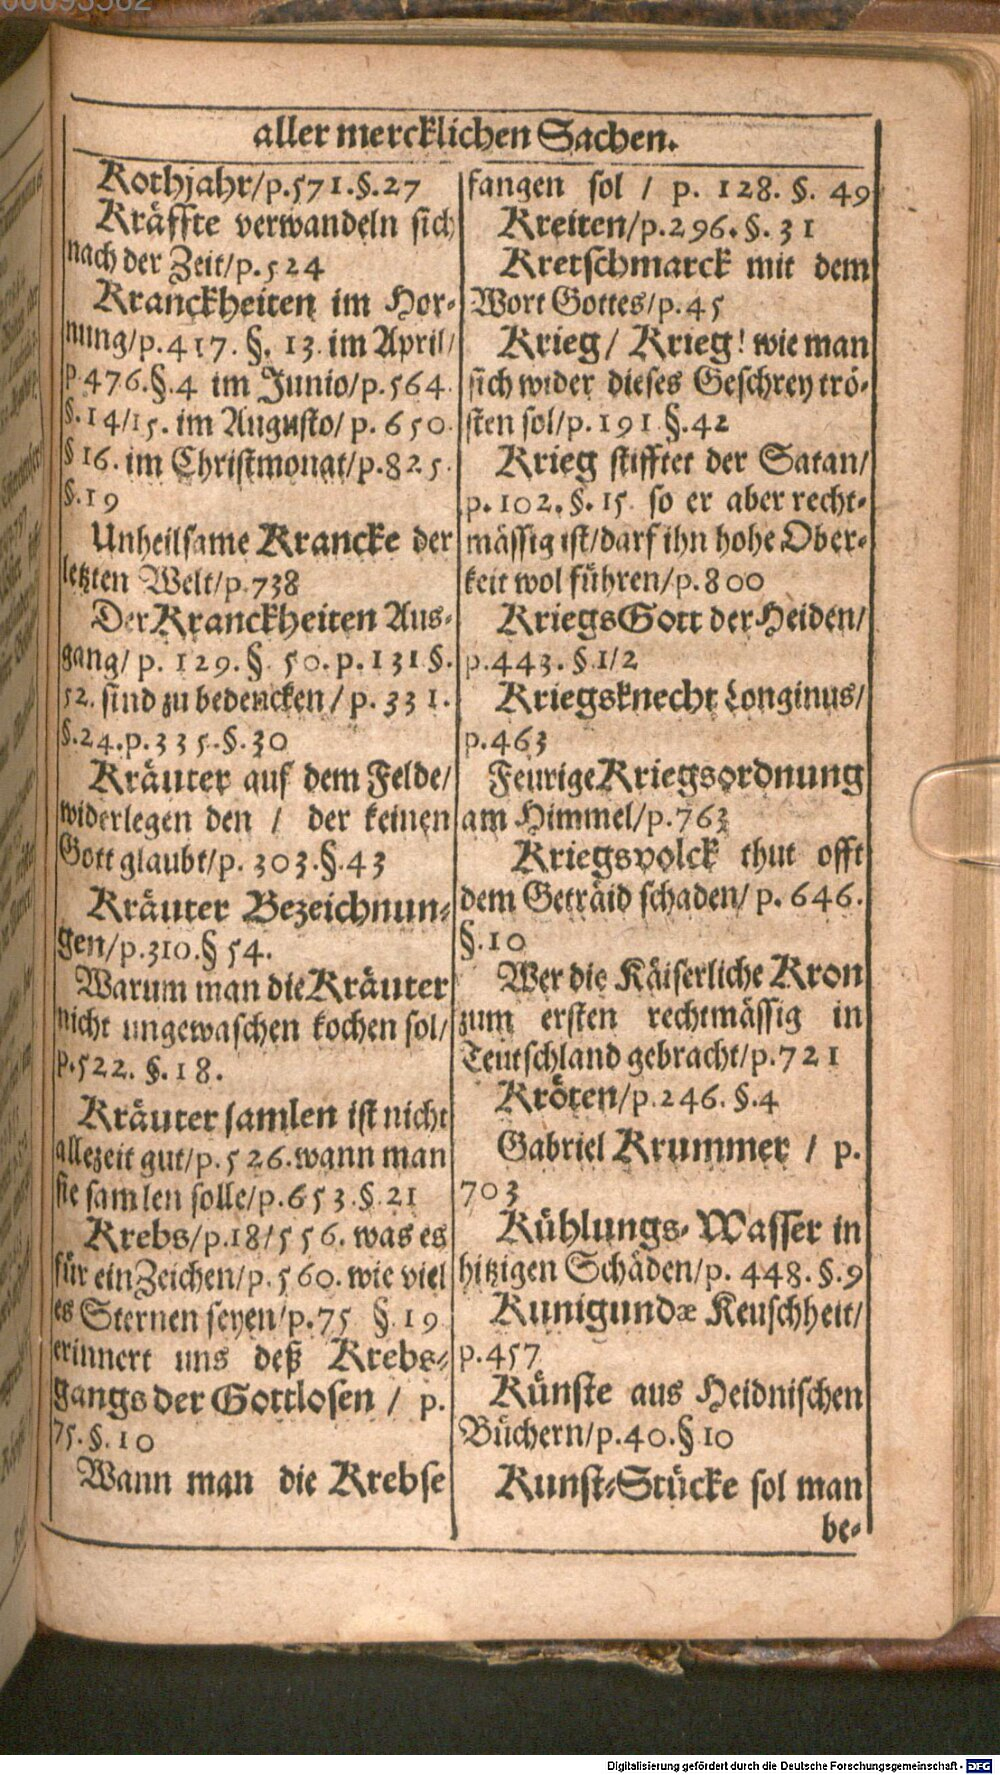 aller mercklichen Sachen.
Kothjahr/p.571.§.27
Kräffte verwandeln sich
nach der Zeit/p.524
Kranckheiten im Hor-
nung/p.417. §. 13. im April/
p.476.§.4 im Junio/p.564.
§.14/15. im Augusto/ p. 650.
§ 16. im Christmonat/p.825.
§.19
Unheilsame Krancke der
letzten Welt/p.738
Der Kranckheiten Aus-
gang/ p. 129. §. 50. p. 131 §.
52. sind zu bedencken/ p. 331.
§.24.p.335.§.30
Kräuter auf dem Felde/
widerlegen den / der keinen
Gott glaubt/p. 303.§.43
Kräuter Bezeichnun-
gen/p.310.§ 54.
Warum man die Kräuter
nicht ungewaschen kochen sol/
p.522. §.18.
Kräuter samlen ist nicht
allezeit gut/p.526.wann man
sie samlen solle/p.653.§.21
Krebs/p.18/556. was es
für ein Zeichen/p.560. wie viel
es Sternen seyen/p.75 §.19
erinnert uns deß Krebs-
gangs der Gottlosen / p.
75.§.10
Wann man die Krebse
fangen sol / p. 128. §. 49
Kreiten/p.296.§.31
Kretschmarck mit dem
Wort Gottes/p.45
Krieg/ Krieg! wie man
sich wider dieses Geschrey trö-
sten sol/p.191 §.42
Krieg stifftet der Satan/
p.102.§.15. so er aber recht-
mässig ist/darf ihn hohe Ober-
keit wol führen/p.800
KriegsGott der Heiden/
p.443.§ 1/2
Kriegsknecht Longinus/
p.463
Feurige Kriegsordnung
am Himmel/p.763
Kriegsvolck thut offt
dem Geträid schaden/ p. 646.
§.10
Wer die Käiserliche Kron
zum ersten rechtmässig in
Teutschland gebracht/p.721
Kröten/p.246. §.4
Gabriel Krummer / p.
703
Kühlungs-Wasser in
hitzigen Schäden/p. 448. §.9
Kunigundæ Keuschheit/
p.457
Künste aus Heidnischen
Büchern/p.40.§ 10
Kunst-Stücke sol man
be-
Digitalisierung gefördert durch die Deutsche Forschungsgemeinschaft - DFG